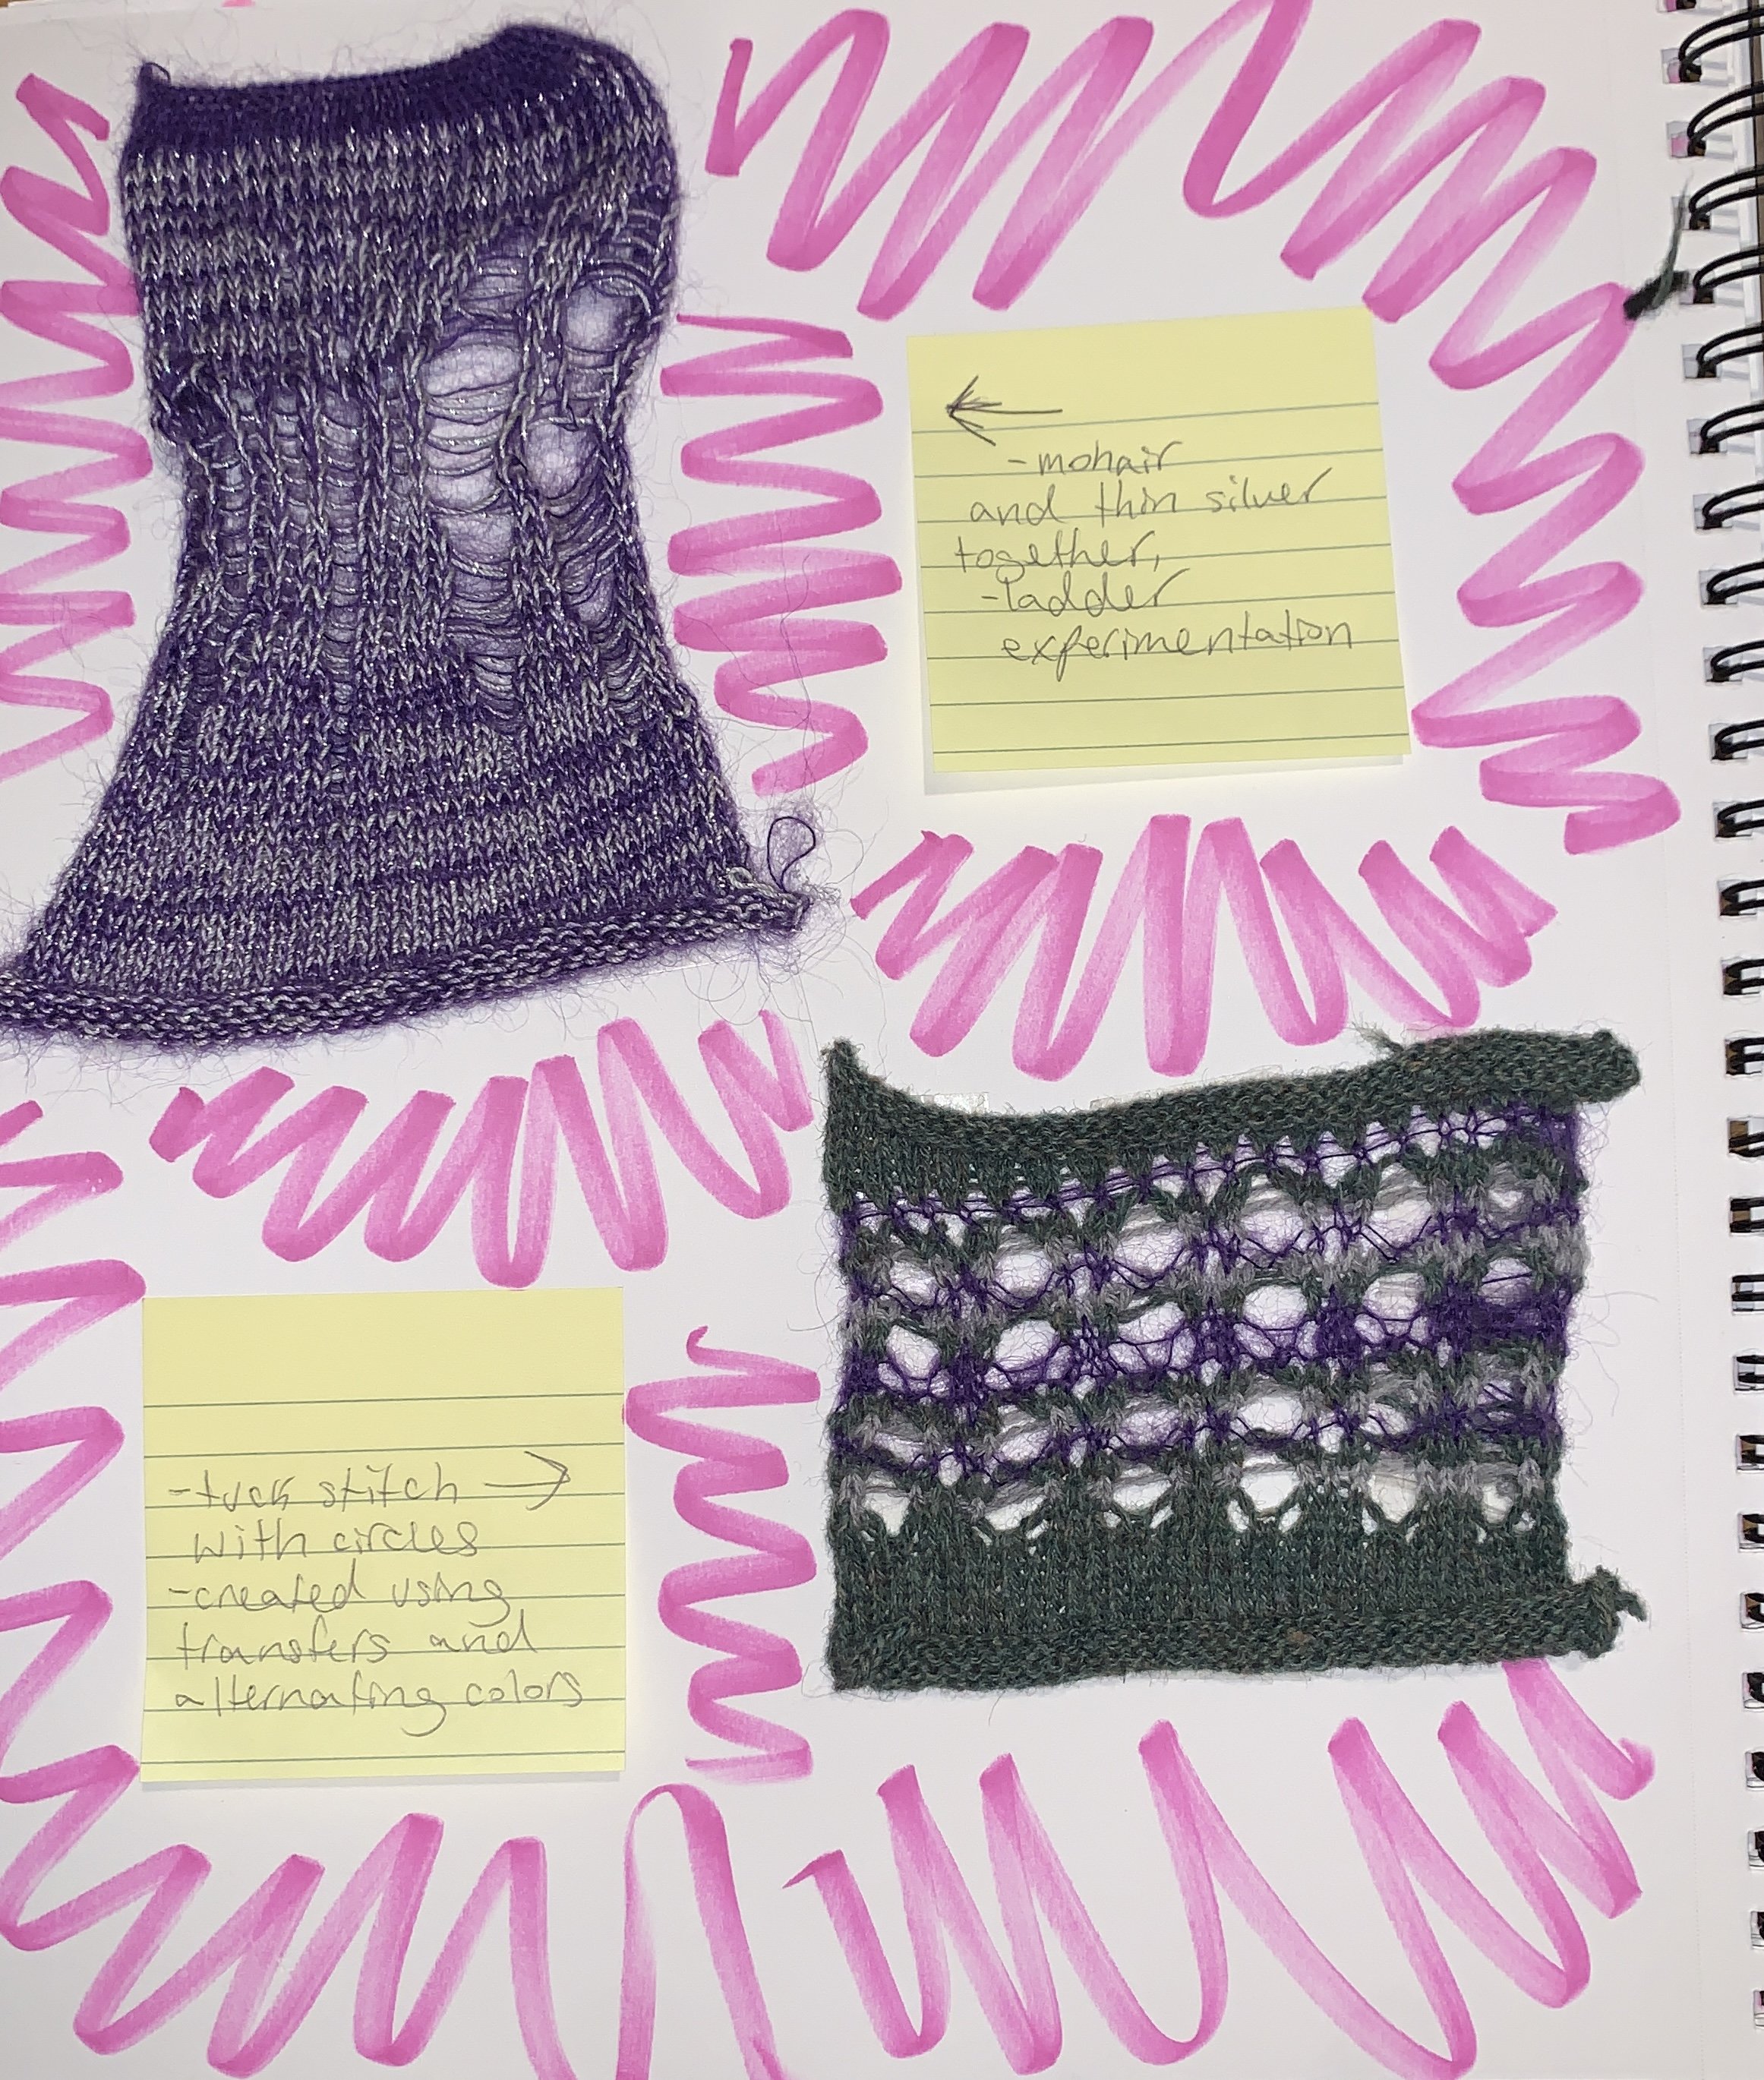 ←
-mohair
and thin silver
together,
-ladder
experimentation
-tuck stitch →
with circles
-created using
transfers and
alternating colors